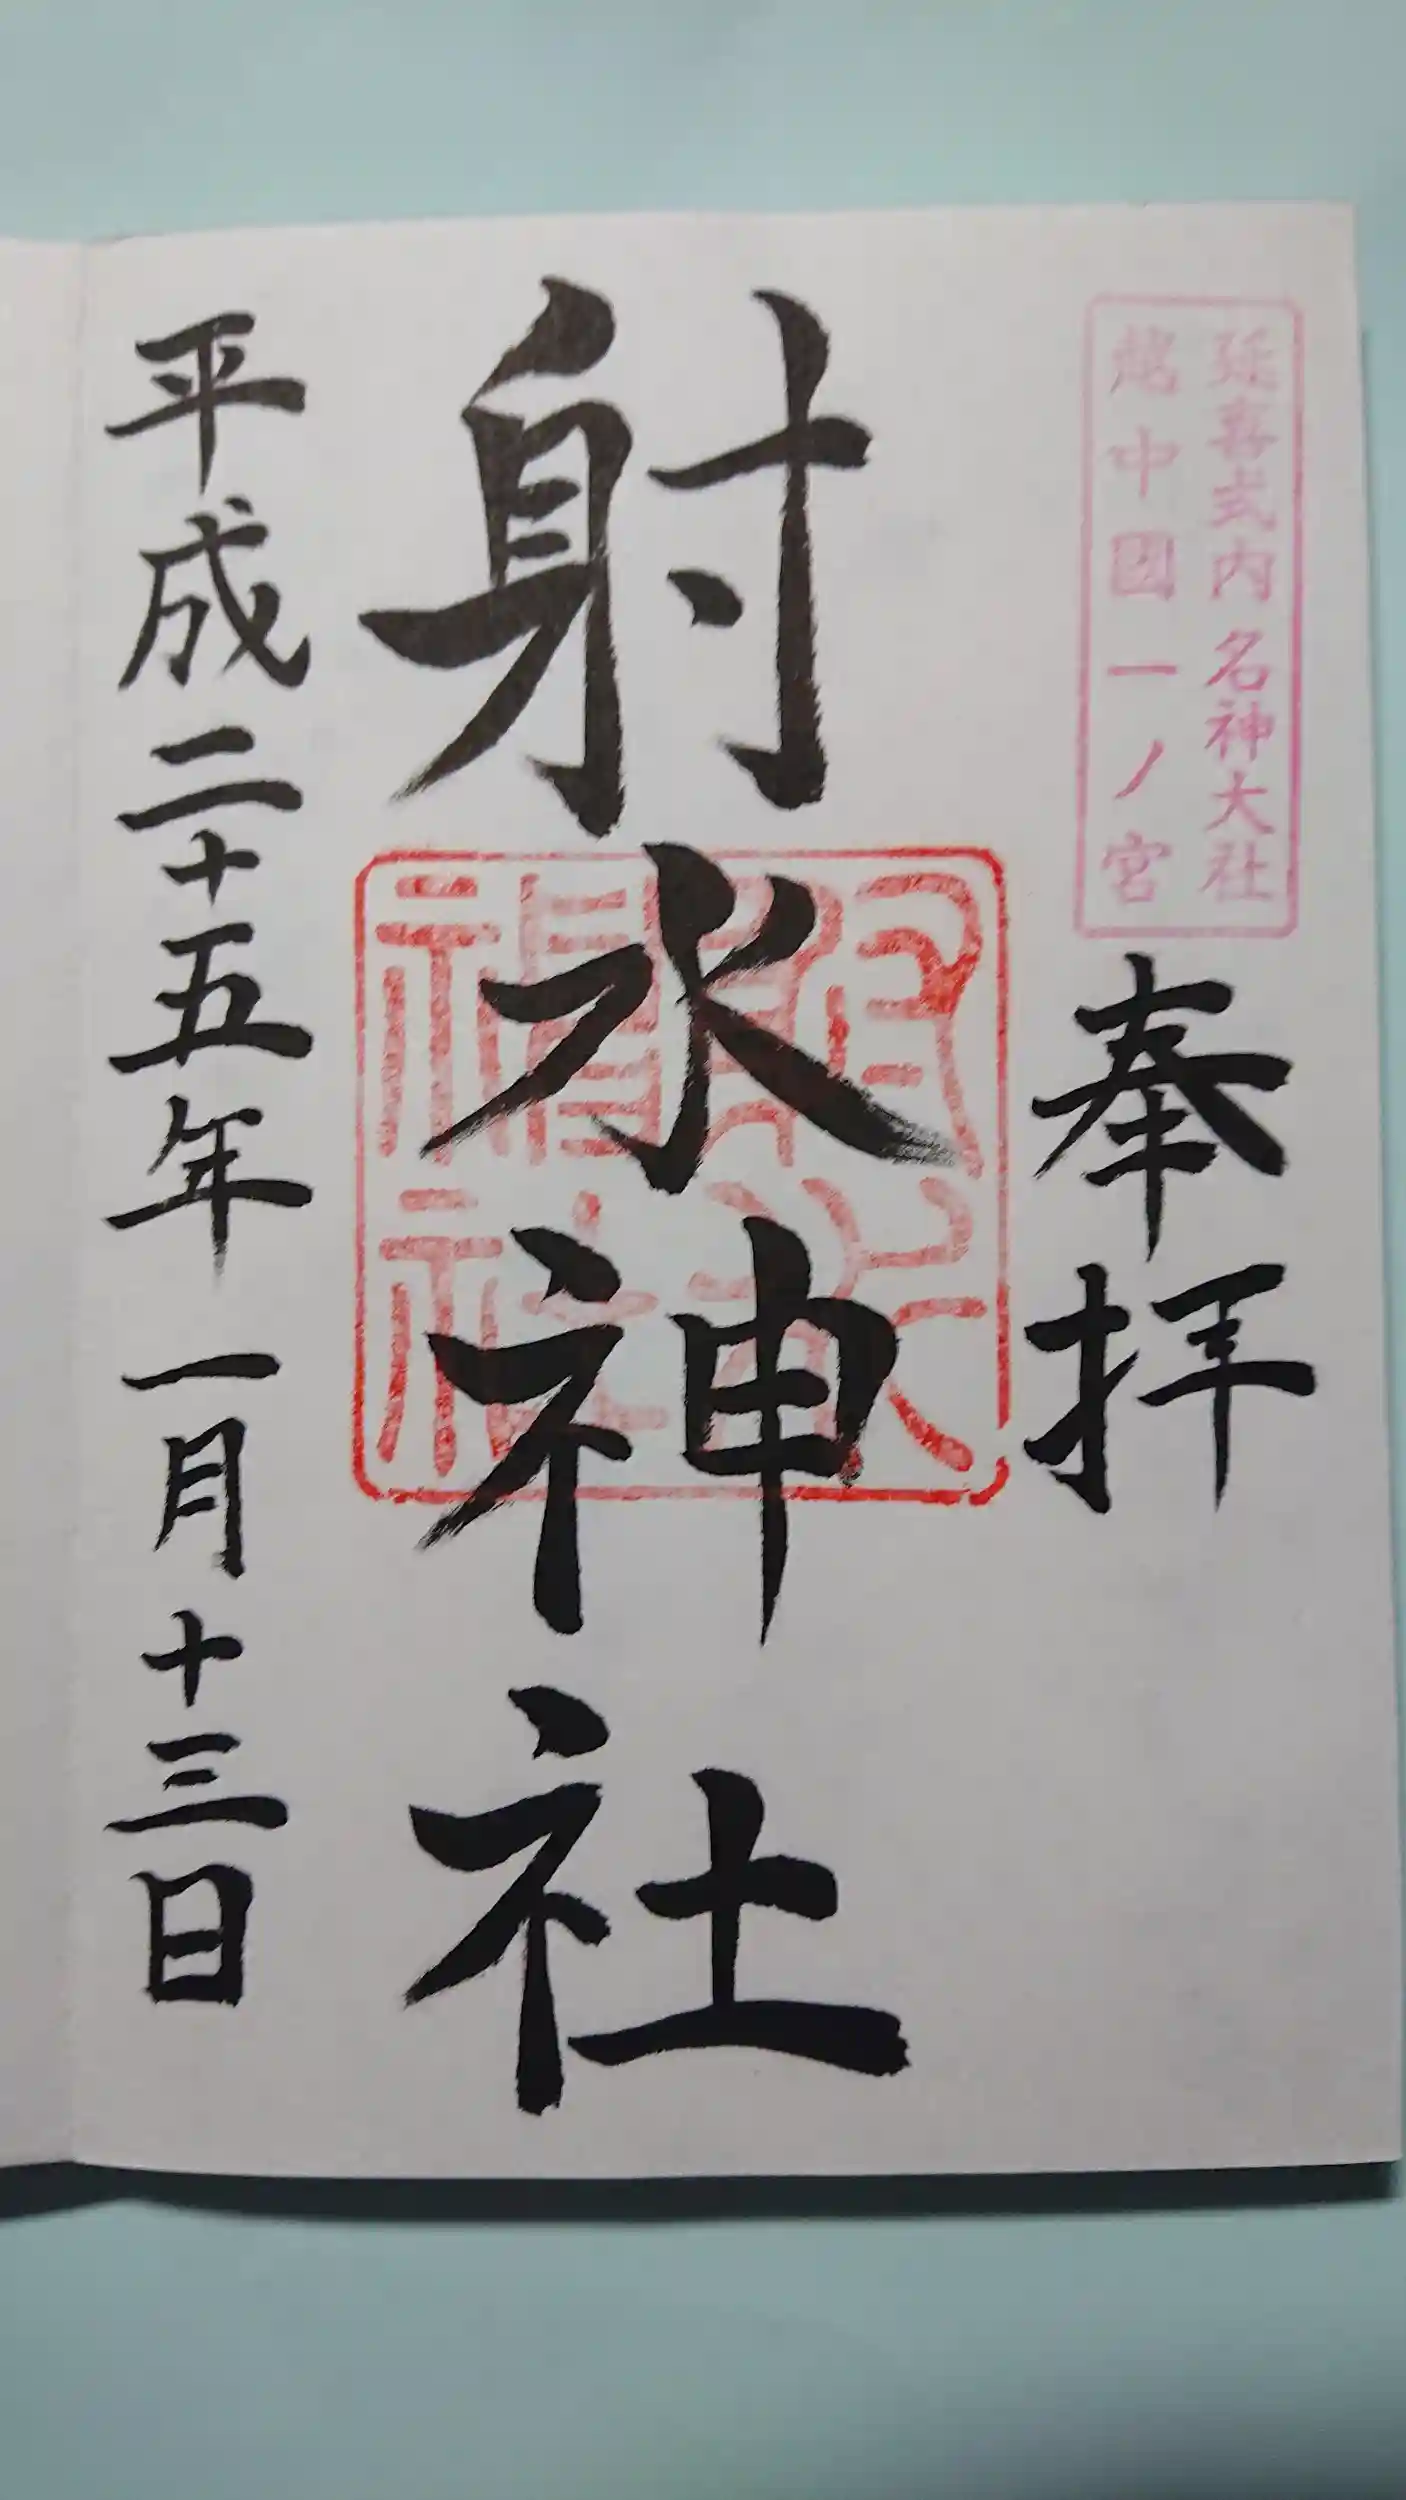 延喜式内名神大社
越中國一ノ宮
奉拝
射水神社
射水
神社
平成二十五年一月十三日